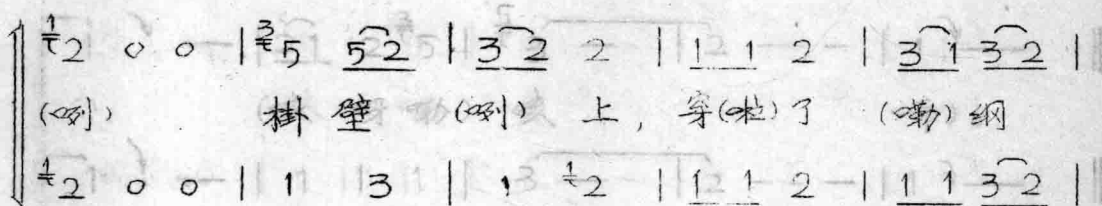 1 2 0 0 | 3 5 5 2 | 3 2 2 | 1 1 2 | 3 1 3 2 |
(咧) 掛 壁 (咧) 上, 穿(啦)了 (嘞)纲
1 2 0 0 | 1 3 | 1 1 2 | 1 1 2 | 1 1 3 2 |